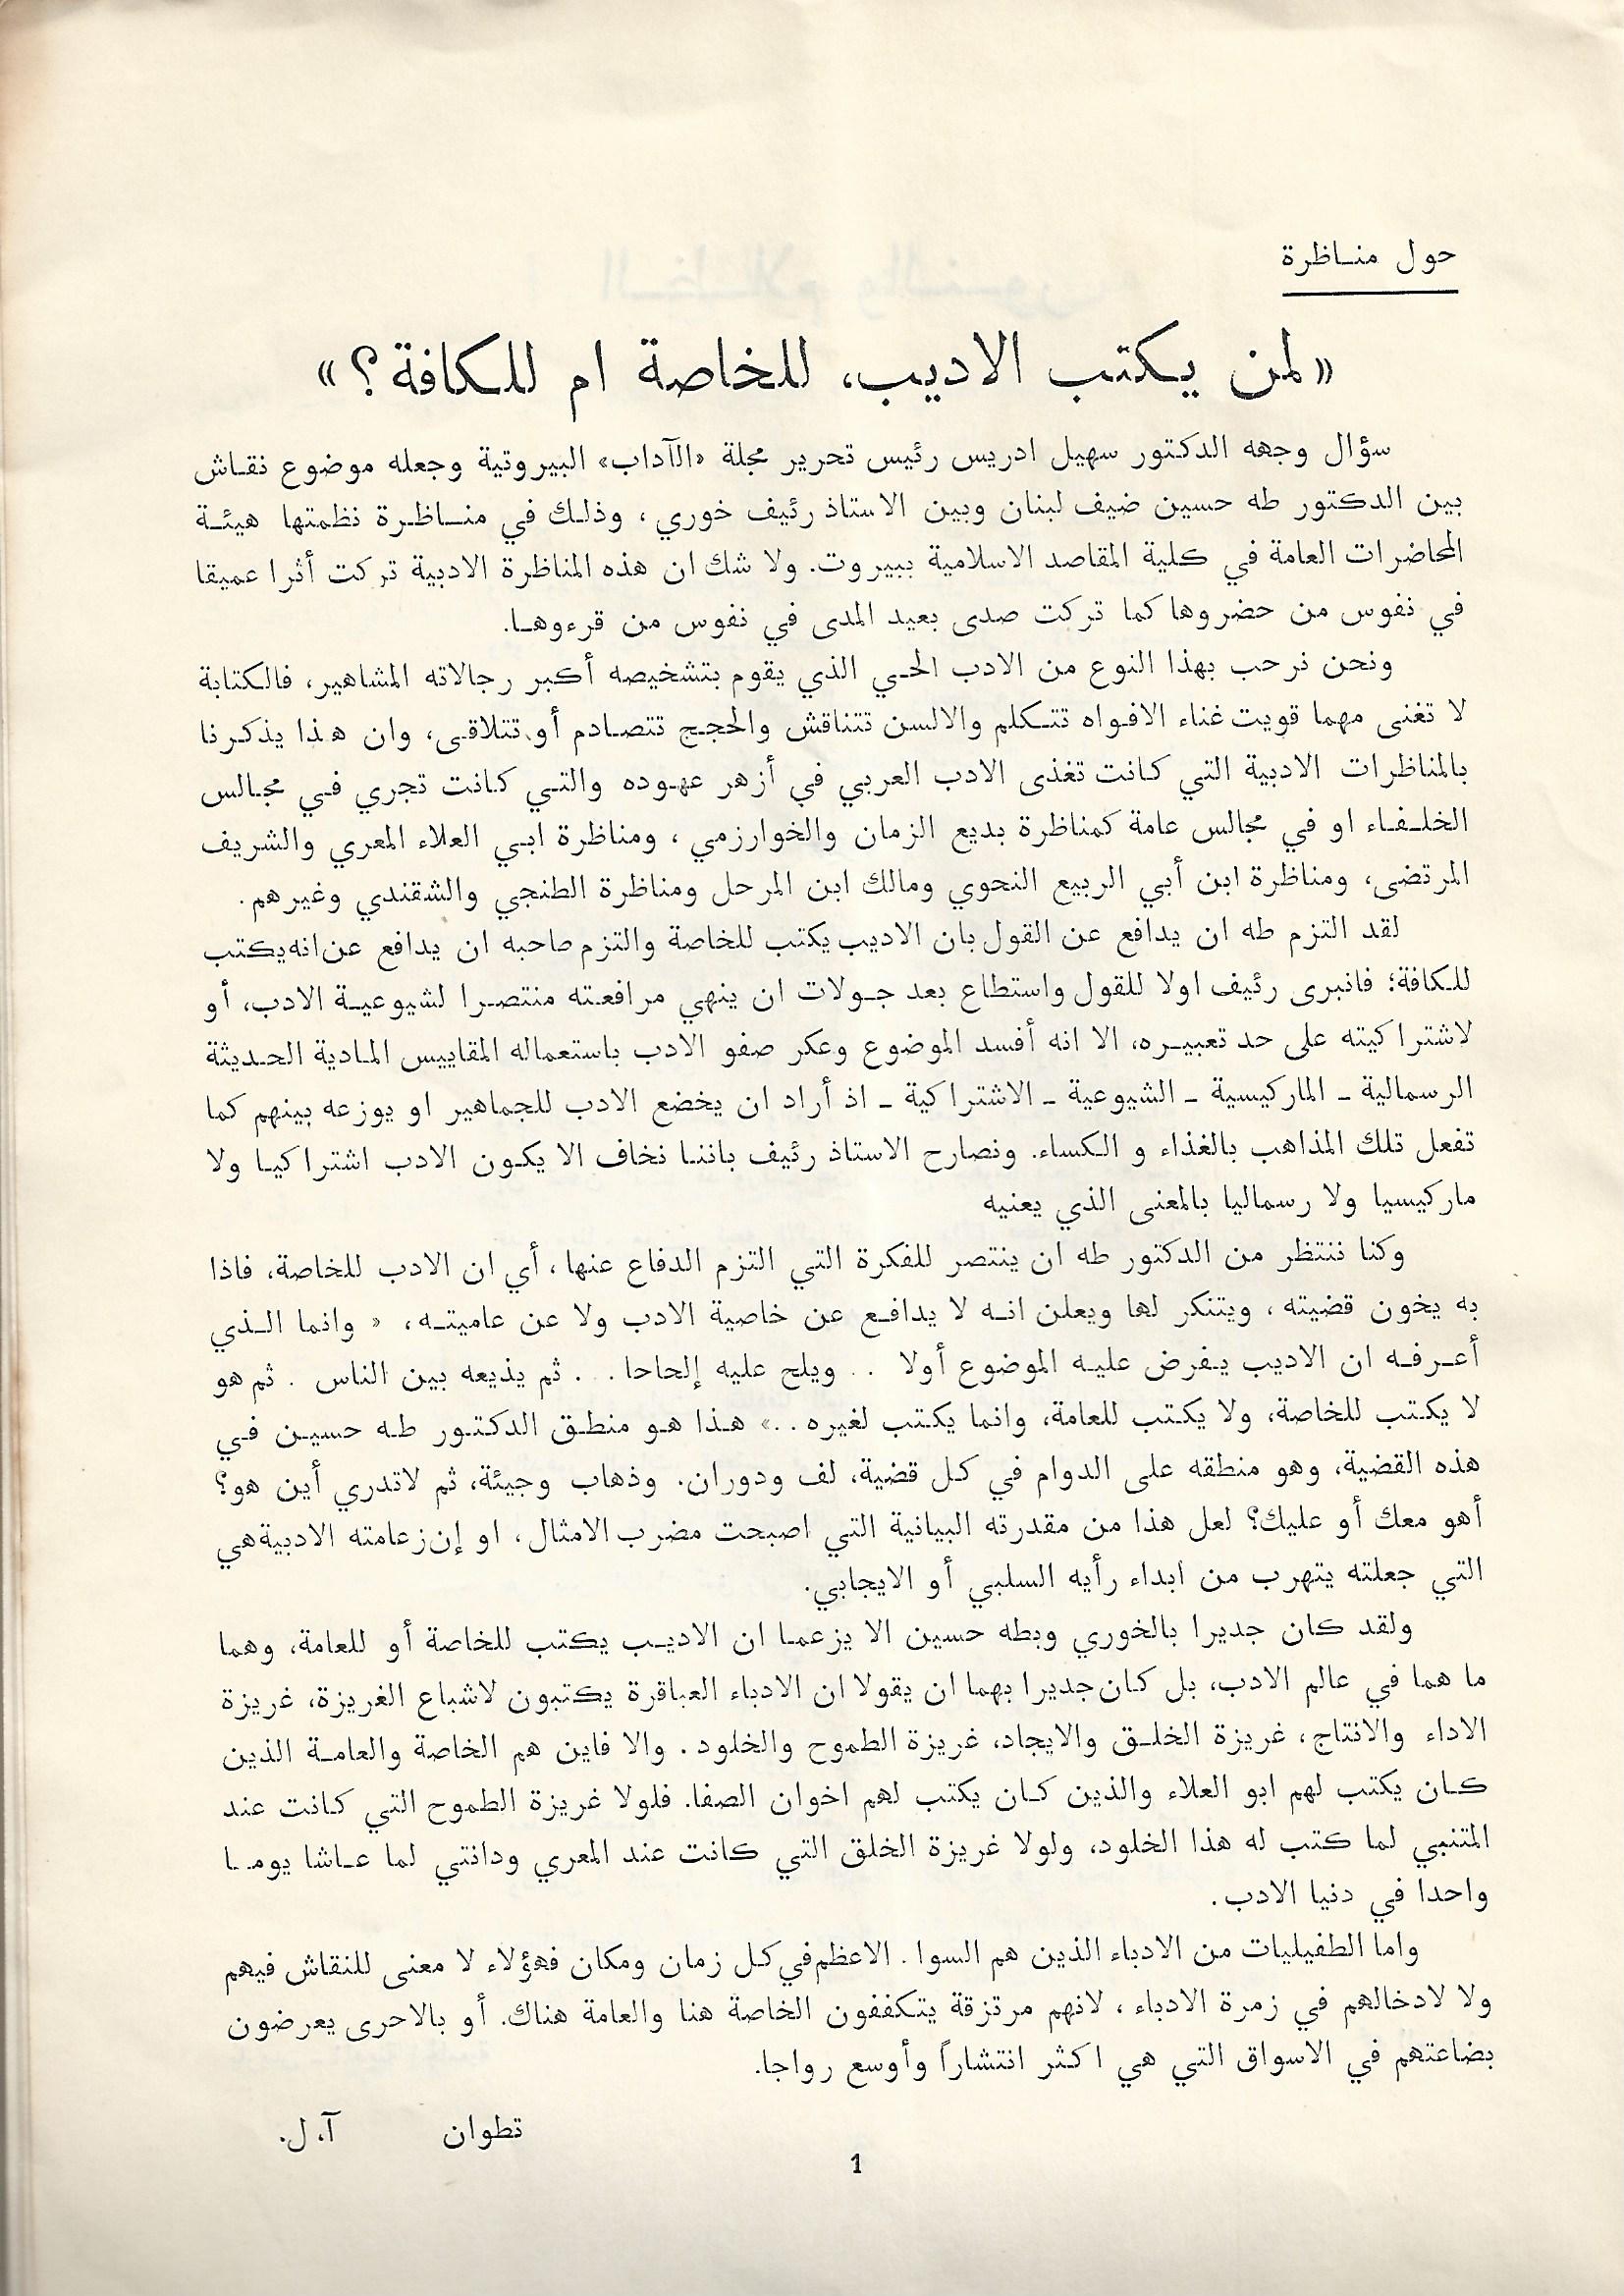 حول مناظرة
«لمن يكتب الاديب، للخاصة ام للكافة؟»
سؤال وجهه الدكتور سهيل ادريس رئيس تحرير مجلة «الآداب» البيروتية وجعله موضوع نقاش
بين الدكتور طه حسين ضيف لبنان وبين الاستاذ رئيف خوري، وذلك في مناظرة نظمتها هيئة
المحاضرات العامة في كلية المقاصد الاسلامية ببيروت. ولا شك ان هذه المناظرة الادبية تركت أثرا عميقا
في نفوس من حضروها كما تركت صدى بعيد المدى في نفوس من قرءوها.
ونحن نرحب بهذا النوع من الادب الحي الذي يقوم بتشخيصه أكبر رجالاته المشاهير، فالكتابة
لا تغنى مهما قويت غناء الافواه تتكلم والالسن تتناقش والحجج تتصادم أو تتلاقى، وان هذا يذكرنا
بالمناظرات الادبية التي كانت تغذى الادب العربي في أزهر عهوده والتي كانت تجري في مجالس
الخلفاء او في مجالس عامة كمناظرة بديع الزمان والخوارزمي، ومناظرة ابي العلاء المعري والشريف
المرتضى، ومناظرة ابن أبي الربيع النحوي ومالك ابن المرحل ومناظرة الطنجي والشقندي وغيرهم.
لقد التزم طه ان يدافع عن القول بان الاديب يكتب للخاصة والتزم صاحبه ان يدافع عن انه يكتب
للكافة؛ فانبرى رئيف اولا للقول واستطاع بعد جولات ان ينهي مرافعته منتصرا لشيوعية الادب، أو
لاشتراكيته على حد تعبيره، الا انه أفسد الموضوع وعكر صفو الادب باستعماله المقاييس المادية الحديثة
الرسمالية ـ الماركيسية ـ الشيوعية ـ الاشتراكية ـ اذ أراد ان يخضع الادب للجماهير او يوزعه بينهم كما
تفعل تلك المذاهب بالغذاء و الكساء. ونصارح الاستاذ رئيف باننا نخاف الا يكون الادب اشتراكيا ولا
ماركيسيا ولا رسماليا بالمعنى الذي يعنيه
وكنا ننتظر من الدكتور طه ان ينتصر للفكرة التي التزم الدفاع عنها، أي ان الادب للخاصة، فاذا
به يخون قضيته، ويتنكر لها ويعلن انه لا يدافع عن خاصية الادب ولا عن عاميته، « وانما الذي
أعرفه ان الاديب يفرض عليه الموضوع أولا .. ويلح عليه إلحاحا. . ثم يذيعه بين الناس . ثم هو
لا يكتب للخاصة، ولا يكتب للعامة، وانما يكتب لغيره ..» هذا هو منطق الدكتور طه حسين في
هذه القضية، وهو منطقه على الدوام في كل قضية، لف ودوران. وذهاب وجيئة، ثم لاتدري أين هو؟
أهو معك أو عليك؟ لعل هذا من مقدرته البيانية التي اصبحت مضرب الامثال، او إن زعامته الادبية هي
التي جعلته يتهرب من ابداء رأيه السلبي أو الايجابي.
ولقد كان جديرا بالخوري وبطه حسين الا يزعما ان الاديب يكتب للخاصة أو للعامة، وهما
ما هما في عالم الادب، بل كان جديرا بهما ان يقولا ان الادباء العباقرة يكتبون لاشباع الغريزة، غريزة
الاداء والانتاج، غريزة الخلق والايجاد، غريزة الطموح والخلود. والا فاين هم الخاصة والعامة الذين
كان يكتب لهم ابو العلاء والذين كان يكتب لهم اخوان الصفا. فلولا غريزة الطموح التي كانت عند
المتنبي لما كتب له هذا الخلود، ولولا غريزة الخلق التي كانت عند المعري ودانتي لما عاشا يوما
واحدا في دنيا الادب.
واما الطفيليات من الادباء الذين هم السوا. الاعظم في كل زمان ومكان فهؤلاء لا معنى للنقاش فيهم
ولا لادخالهم في زمرة الادباء، لانهم مرتزقة يتكففون الخاصة هنا والعامة هناك. أو بالاحرى يعرضون
بضاعتهم في الاسواق التي هي اكثر انتشاراً وأوسع رواجا.
تطوان آ. ل.
1